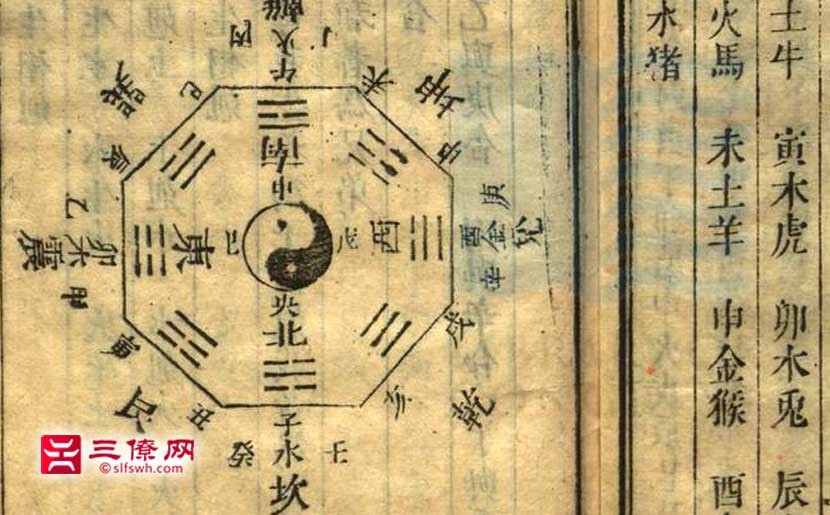 土牛 寅木虎 卯木兎 辰
火馬 未土羊 申金猴 酉
水猪
離火午
丙
丁
巳
巽
辰
未
坤
申
南
中
央
北
東
己
戊
西
乙
震木卯
甲
庚
酉金兌
辛
寅
艮
丑
戌
乾
亥
子水坎
癸
壬
三僚网
©slfswh.com